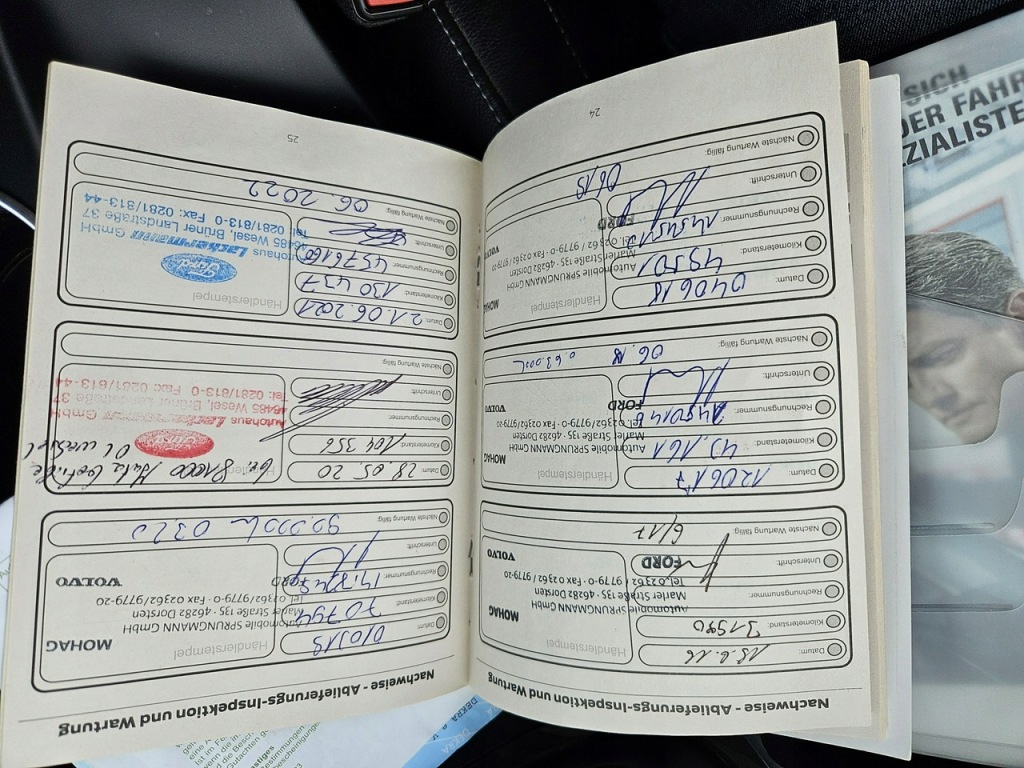 Nachweise - Ablieferungs-Inspektion und Wartung
Datum:
Kilometerstand:
Rechnungsnummer:
Unterschrift:
Nächste Wartung fällig: 6/17
Händlerstempel
MOHAG
Automobile SPRUNGMANN GmbH
Marler Straße 135 · 46282 Dorsten
Tel. 02362 / 9779-0 · Fax 02362 / 9779-20
FORD VOLVO
Datum: 120617
Kilometerstand:
Rechnungsnummer:
Unterschrift:
Nächste Wartung fällig: 06.18
Händlerstempel
MOHAG
Automobile SPRUNGMANN GmbH
Marler Straße 135 · 46282 Dorsten
Tel. 02362 / 9779-0 · Fax 02362 / 9779-20
FORD VOLVO
Datum: 040618
Kilometerstand: 49501
Rechnungsnummer:
Unterschrift:
Nächste Wartung fällig: 06.19
Händlerstempel
MOHAG
Automobile SPRUNGMANN GmbH
Marler Straße 135 · 46282 Dorsten
Tel. 02362 / 9779-0 · Fax 02362 / 9779-20
FORD VOLVO
24
Nachweise - Ablieferungs-Inspektion und Wartung
Datum: 010319
Kilometerstand: 70794
Rechnungsnummer:
Unterschrift:
Nächste Wartung fällig: 90.000 0320
Händlerstempel
MOHAG
Automobile SPRUNGMANN GmbH
Marler Straße 135 · 46282 Dorsten
Tel. 02362/9779-0 · Fax 02362/9779-20
FORD VOLVO
Datum: 28.05.20
Kilometerstand: 104 356
Rechnungsnummer:
Unterschrift:
Nächste Wartung fällig:
Händlerstempel
bei 81000
Ford
Autohaus Lackermann GmbH
46485 Wesel, Brüner Landstraße 37
Tel. 0281/813-0 Fax: 0281/813-44
Datum: 21.06.2021
Kilometerstand: 130 437
Rechnungsnummer: 4576160
Unterschrift:
Nächste Wartung fällig: 06.2022
Händlerstempel
Ford
Autohaus Lackermann GmbH
46485 Wesel, Brüner Landstraße 37
Tel. 0281/813-0 Fax: 0281/813-44
25
SICH
DER FAHR
ZIALISTE
DEKRA